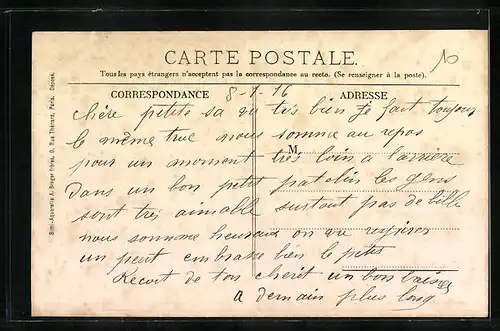 CARTE POSTALE.
Tous les pays étrangers n'acceptent pas la correspondance au recto. (Se renseigner à la poste).
CORRESPONDANCE 8-7-16 ADRESSE
Chère petite sa va très bien je fait toujours
le même truc nous somme au repos
M
pour un moment très loin a l'arrière
Dans un bon petit patelin les gens
sont très aimable surtout pas de bille
nous somme heureux on va respirer
un peut embrasse bien le petit
Recoit de ton cheret un bon baiser
a demain plus long
Simi-Aquarelle A. Breger frères, 9, Rue Thénard, Paris. Déposé.